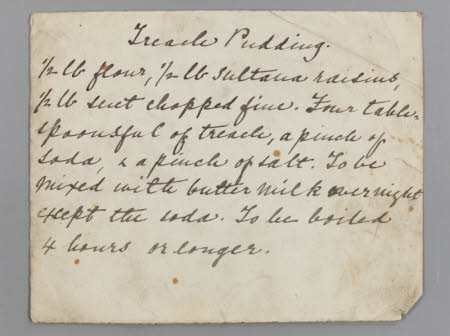 Treacle Pudding.
½ lb flour, ½ lb Sultana raisins,
½ lb suet chopped fine. Four table-
spoonsful of treacle, a pinch of
soda, & a pinch of salt. To be
mixed with butter milk overnight
except the soda. To be boiled
4 hours or longer.